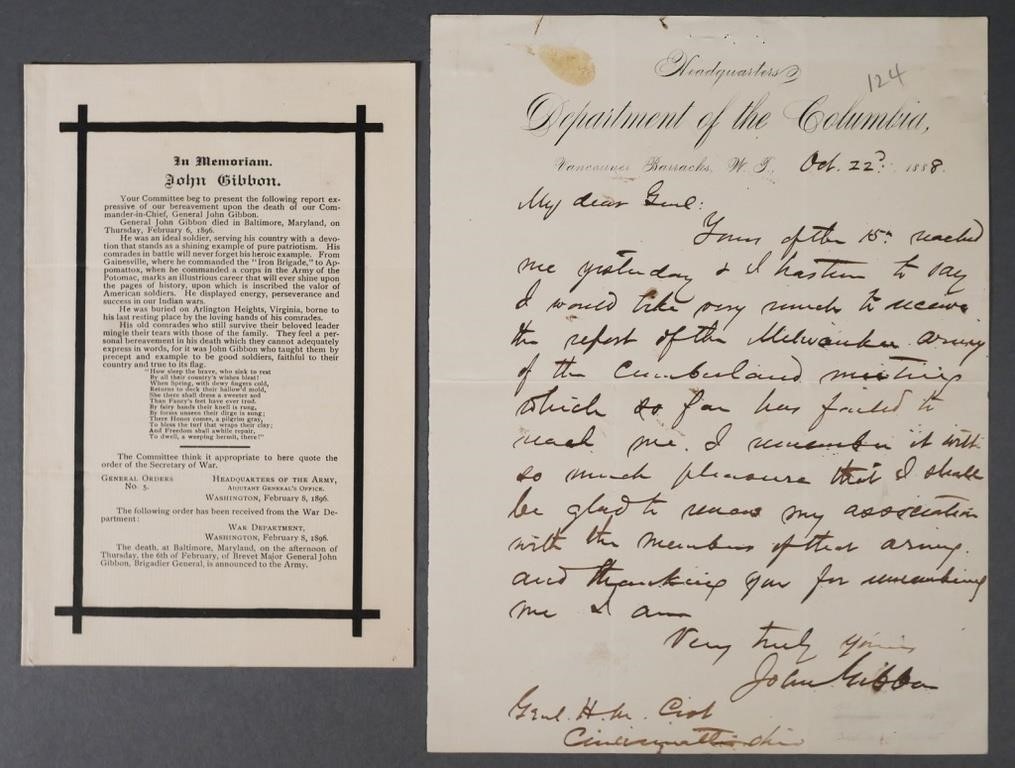 In Memoriam.
John Gibbon.
Your Committee beg to present the following report ex-
pressive of our bereavement upon the death of our Com-
mander-in-Chief, General John Gibbon.
General John Gibbon died in Baltimore, Maryland, on
Thursday, February 6, 1896.
He was an ideal soldier, serving his country with a devo-
tion that stands as a shining example of pure patriotism. His
comrades in battle will never forget his heroic example. From
Gainesville, where he commanded the "Iron Brigade," to Ap-
pomattox, when he commanded a corps in the Army of the
Potomac, marks an illustrious career that will ever shine upon
the pages of history, upon which is inscribed the valor of
American soldiers. He displayed energy, perseverance and
success in our Indian wars.
He was buried on Arlington Heights, Virginia, borne to
his last resting place by the loving hands of his comrades.
His old comrades who still survive their beloved leader
mingle their tears with those of the family. They feel a per-
sonal bereavement in his death which they cannot adequately
express in words, for it was John Gibbon who taught them by
precept and example to be good soldiers, faithful to their
country and true to its flag.
"How sleep the brave, who sink to rest
By all their country's wishes blest!
When Spring, with dewy fingers cold,
Returns to deck their hallow'd mold,
She there shall dress a sweeter sod
Than Fancy's feet have ever trod.
By fairy hands their knell is rung,
By forms unseen their dirge is sung;
There Honor comes, a pilgrim gray,
To bless the turf that wraps their clay;
And Freedom shall awhile repair,
To dwell, a weeping hermit, there!"
The Committee think it appropriate to here quote the
order of the Secretary of War.
General Orders
No. 5.
Headquarters of the Army,
Adjutant General's Office.
Washington, February 8, 1896.
The following order has been received from the War De-
partment:
War Department,
Washington, February 8, 1896.
The death, at Baltimore, Maryland, on the afternoon of
Thursday, the 6th of February, of Brevet Major General John
Gibbon, Brigadier General, is announced to the Army.
Headquarters
124
Department of the Columbia,
Vancouver Barracks, W. T., Oct. 22d 1888.
My dear Genl:
Yours of the 15th reached
me yesterday & I hasten to say
I would like very much to receive
the report of the Milwaukee army
of the Cumberland meeting
which so far has failed to
reach me. I remember it with
so much pleasure that I shall
be glad to renew my association
with the members of that army.
and thanking you for remembering
me I am
Very truly yours
John Gibbon
Genl. H. M. Cist
Cincinnati Ohio